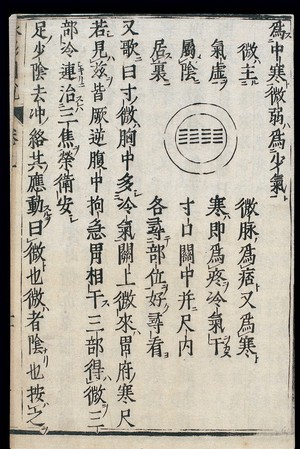 爲中寒微弱爲少氣
微主
微脉爲痞又爲寒
氣虛
寒即爲疼冷氣干
屬陰
寸口關中并尺内
居裏
各尋部位好尋看
又歌曰寸微胸中多冷氣關上微來胃府寒尺
若見茲皆厥逆腹中拘急胃相干三部得微三
部冷連治三焦榮衛安
足少陰去冲絡其應動曰微也微者陰也按之